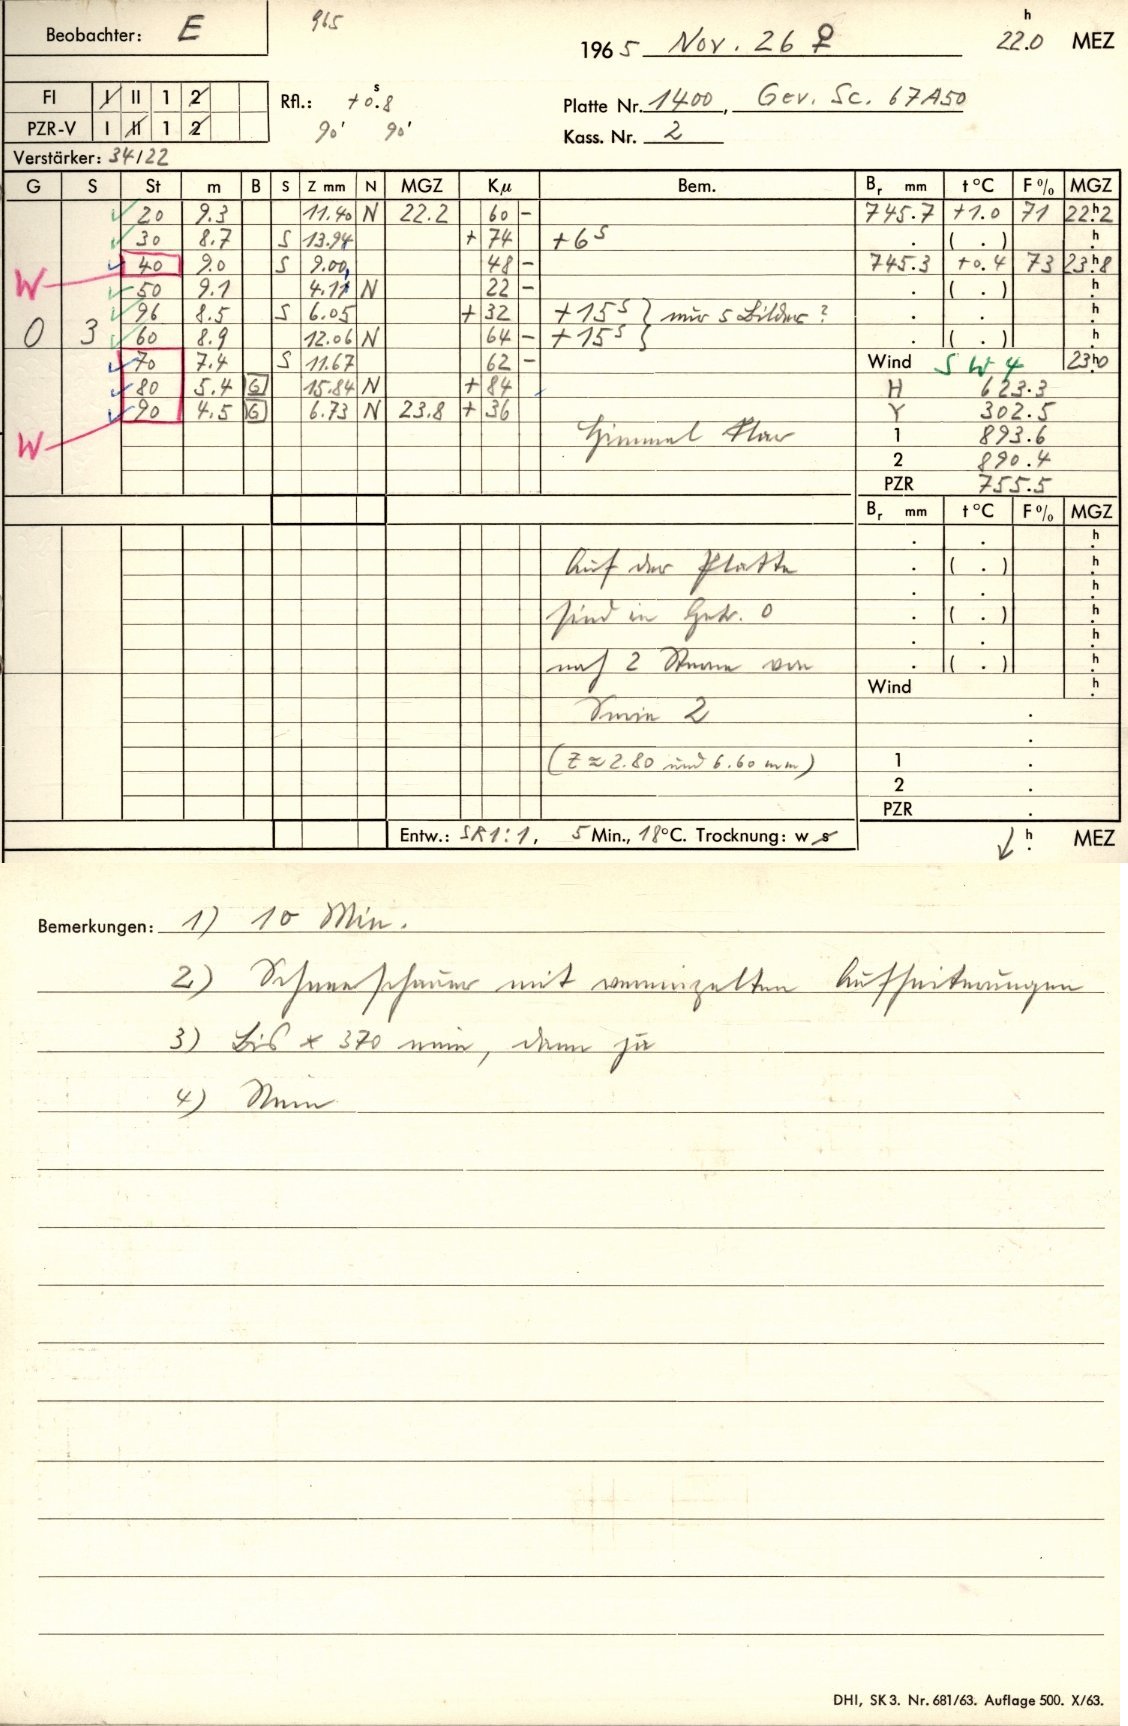 Beobachter: E
965
1965 Nov. 26 ♀ 22.0 h MEZ
FI I II 1 2
PZR-V I II 1 2
Rfl.: +0.8 s
90' 90'
Platte Nr. 1400, Gev. Sc. 67A50
Kass. Nr. 2
Verstärker: 34/22
G S St m B S Z mm N MGZ Kμ Bem. Br mm t °C F % MGZ
20 9.3 11.40 N 22.2 60 - 745.7 +1.0 71 22h2
30 8.7 S 13.94 + 74 +6s . ( . ) h
W 40 9.0 S 9.00 48 - 745.3 +0.4 73 23h8
50 9.1 4.11 N 22 - . ( . ) h
96 8.5 S 6.05 + 32 +15s } nur 5 Bilder? . . h
0 3 60 8.9 12.06 N 64 - +15s } ( . ) h
70 7.4 S 11.67 62 - Wind SW 4 23h0
80 5.4 G 15.84 N + 84 H 623.3
90 4.5 G 6.73 N 23.8 + 36 Y 302.5
W Himmel klar 1 893.6
2 890.4
PZR 755.5
Br mm t °C F % MGZ
. . h
Auf der Platte . ( . ) h
. . h
sind in Getr. 0 . ( . ) h
. . h
noch 2 Sterne von . ( . ) h
Wind h
Serie 2 .
.
(Z ≈ 2.80 und 6.60 mm) 1 .
2 .
PZR .
Entw.: SR1:1, 5 Min., 18°C. Trocknung: w s h MEZ
Bemerkungen: 1) 10 Min.
2) Schneeschauer mit vereinzelten Aufheiterungen
3) Bis * 370 nein, dann ja
4) Nein
DHI, SK 3. Nr. 681/63. Auflage 500. X/63.